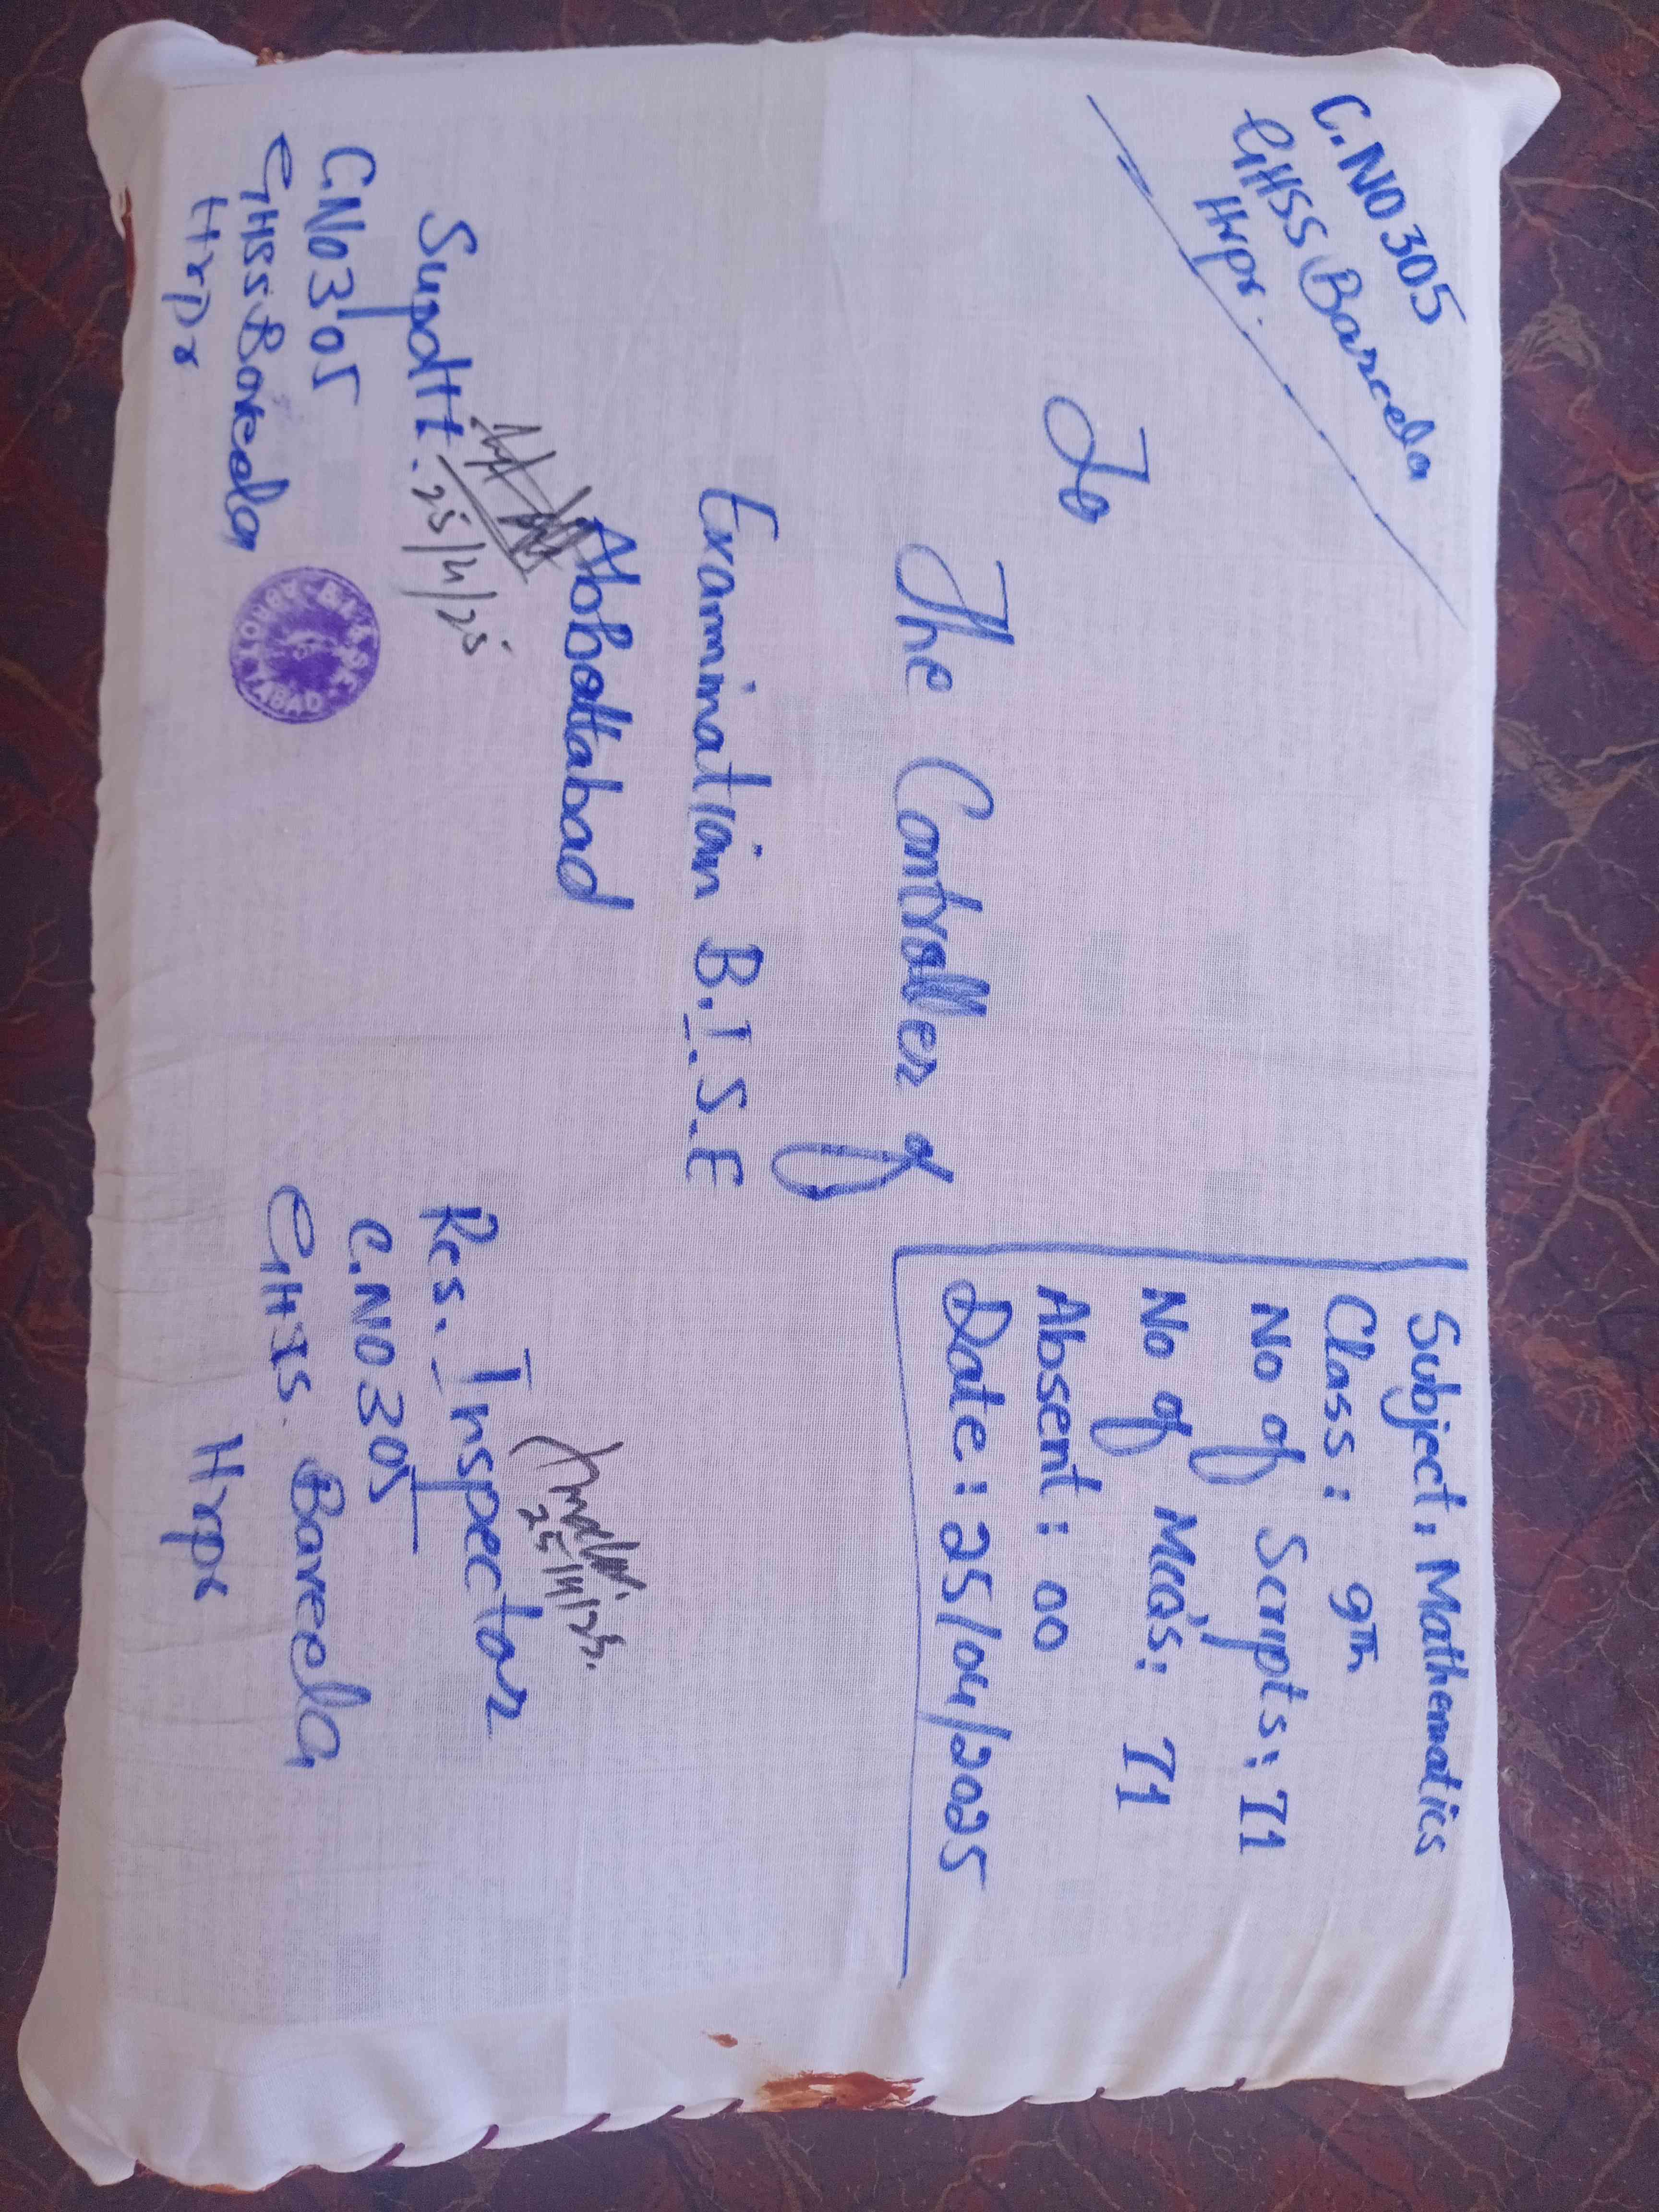 C.NO 305
GHSS Bareela
Hrpr.
Subject: Mathematics
Class: 9th
No of Scripts: 71
No of Mcq's: 71
Absent: 00
Date: 25/04/2025
To
The Controller of
Examination B.I.S.E
Abbottabad
25/4/25
Supdtt.
C.No 305
GHSS Bareela
Hrpr
ABAD
25/4/25.
Res. Inspector
C.NO 305
GHSS. Bareela
Hrpr